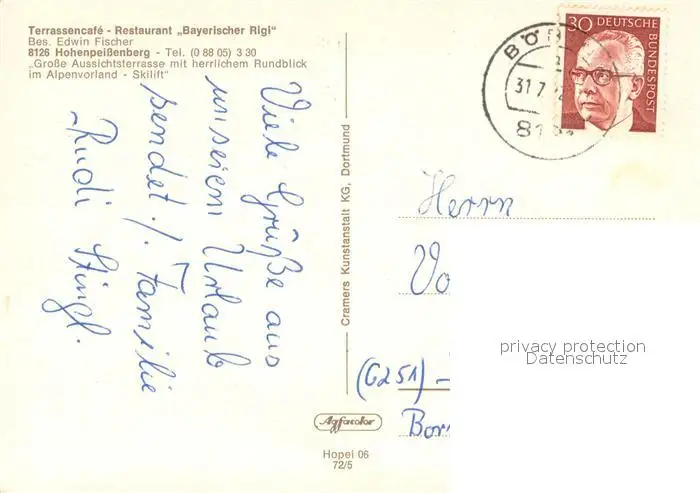 Terrassencafé - Restaurant „Bayerischer Rigi“
Bes. Edwin Fischer
8126 Hohenpeißenberg - Tel. (0 88 05) 3 30
„Große Aussichtsterrasse mit herrlichem Rundblick
im Alpenvorland - Skilift“
Viele Grüße aus
unserem Urlaub
sendet /. Familie
Rudi Stingl.
Cramers Kunstanstalt KG, Dortmund
Agfacolor
Hopei 06
72/5
30 DEUTSCHE
BUNDESPOST
31.7.
Herrn
Vo
(6251) -
Bor
privacy protection
Datenschutz